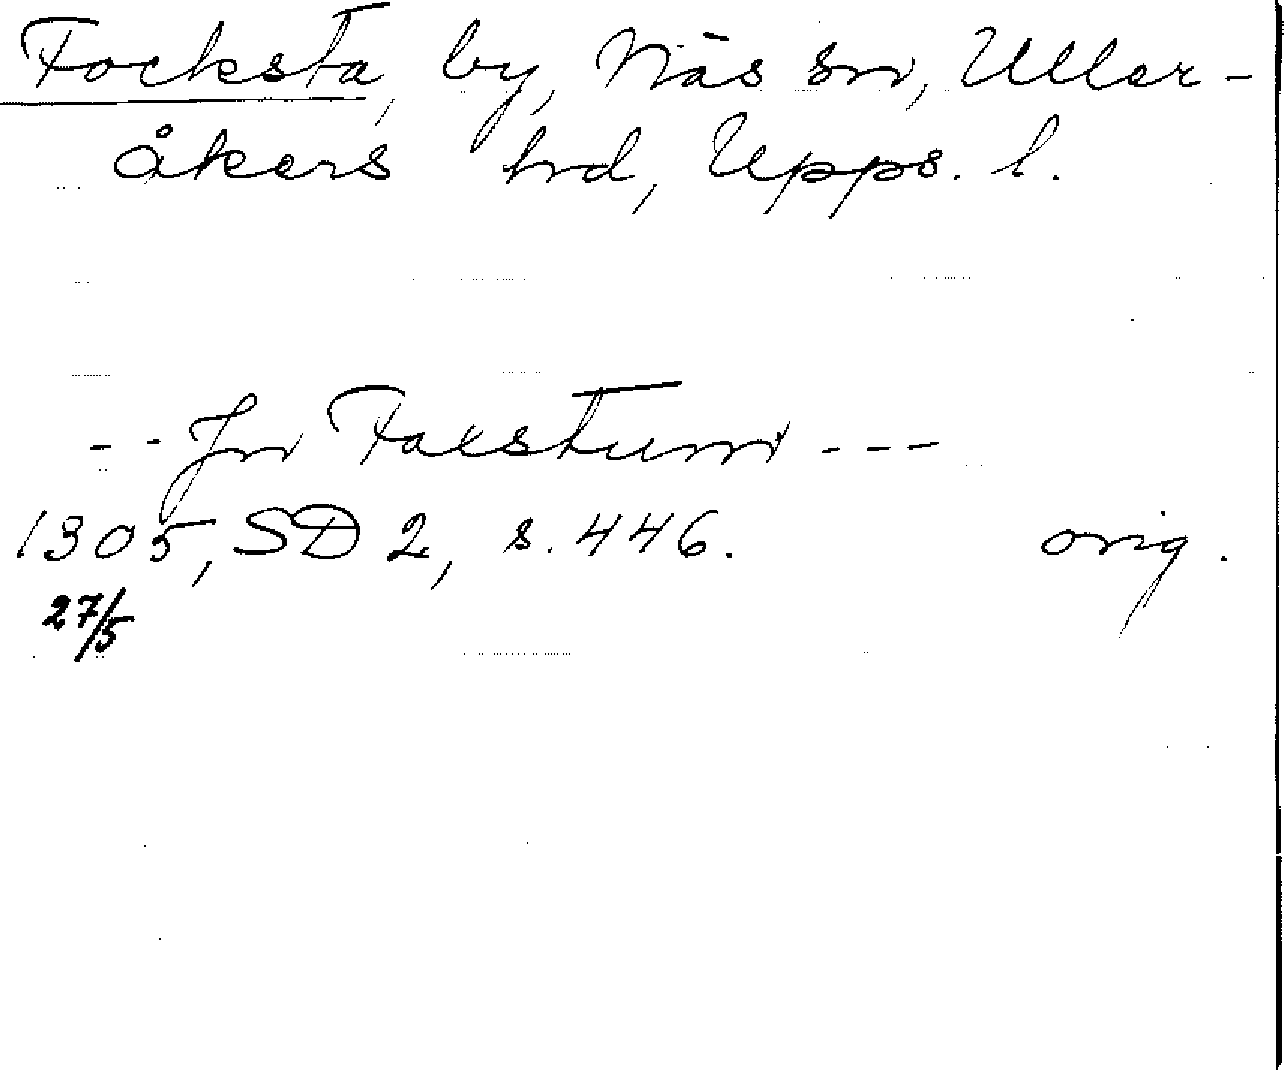 Focksta, by, Näs sn, Uller-
åkers hd, Upps. l.
- - Jn Faxstum - - -
1305, SD 2, s. 446. orig.
27/5